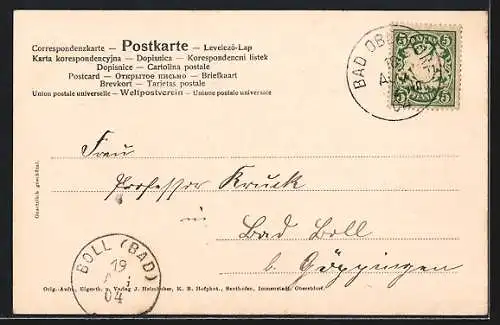 Correspondenzkarte – Postkarte – Levelező-Lap
Karta korespondencyjna – Dopisnica – Korespondencni listek
Dopisnice – Cartolina postale
Postcard – Открытое письмо – Briefkaart
Brevkort – Tarjetas postale
Union postale universelle – Weltpostverein – Unione postale universale
BAD OB
5 5
5 5
Gesetzlich geschützt.
Frau
Professor Kruck
in
Bad Boll
b. Göppingen
BOLL (BAD)
19
04
Orig.-Aufn., Eigenth. u. Verlag J. Heimhuber, K. B. Hofphot., Sonthofen, Immenstadt, Oberstdorf.